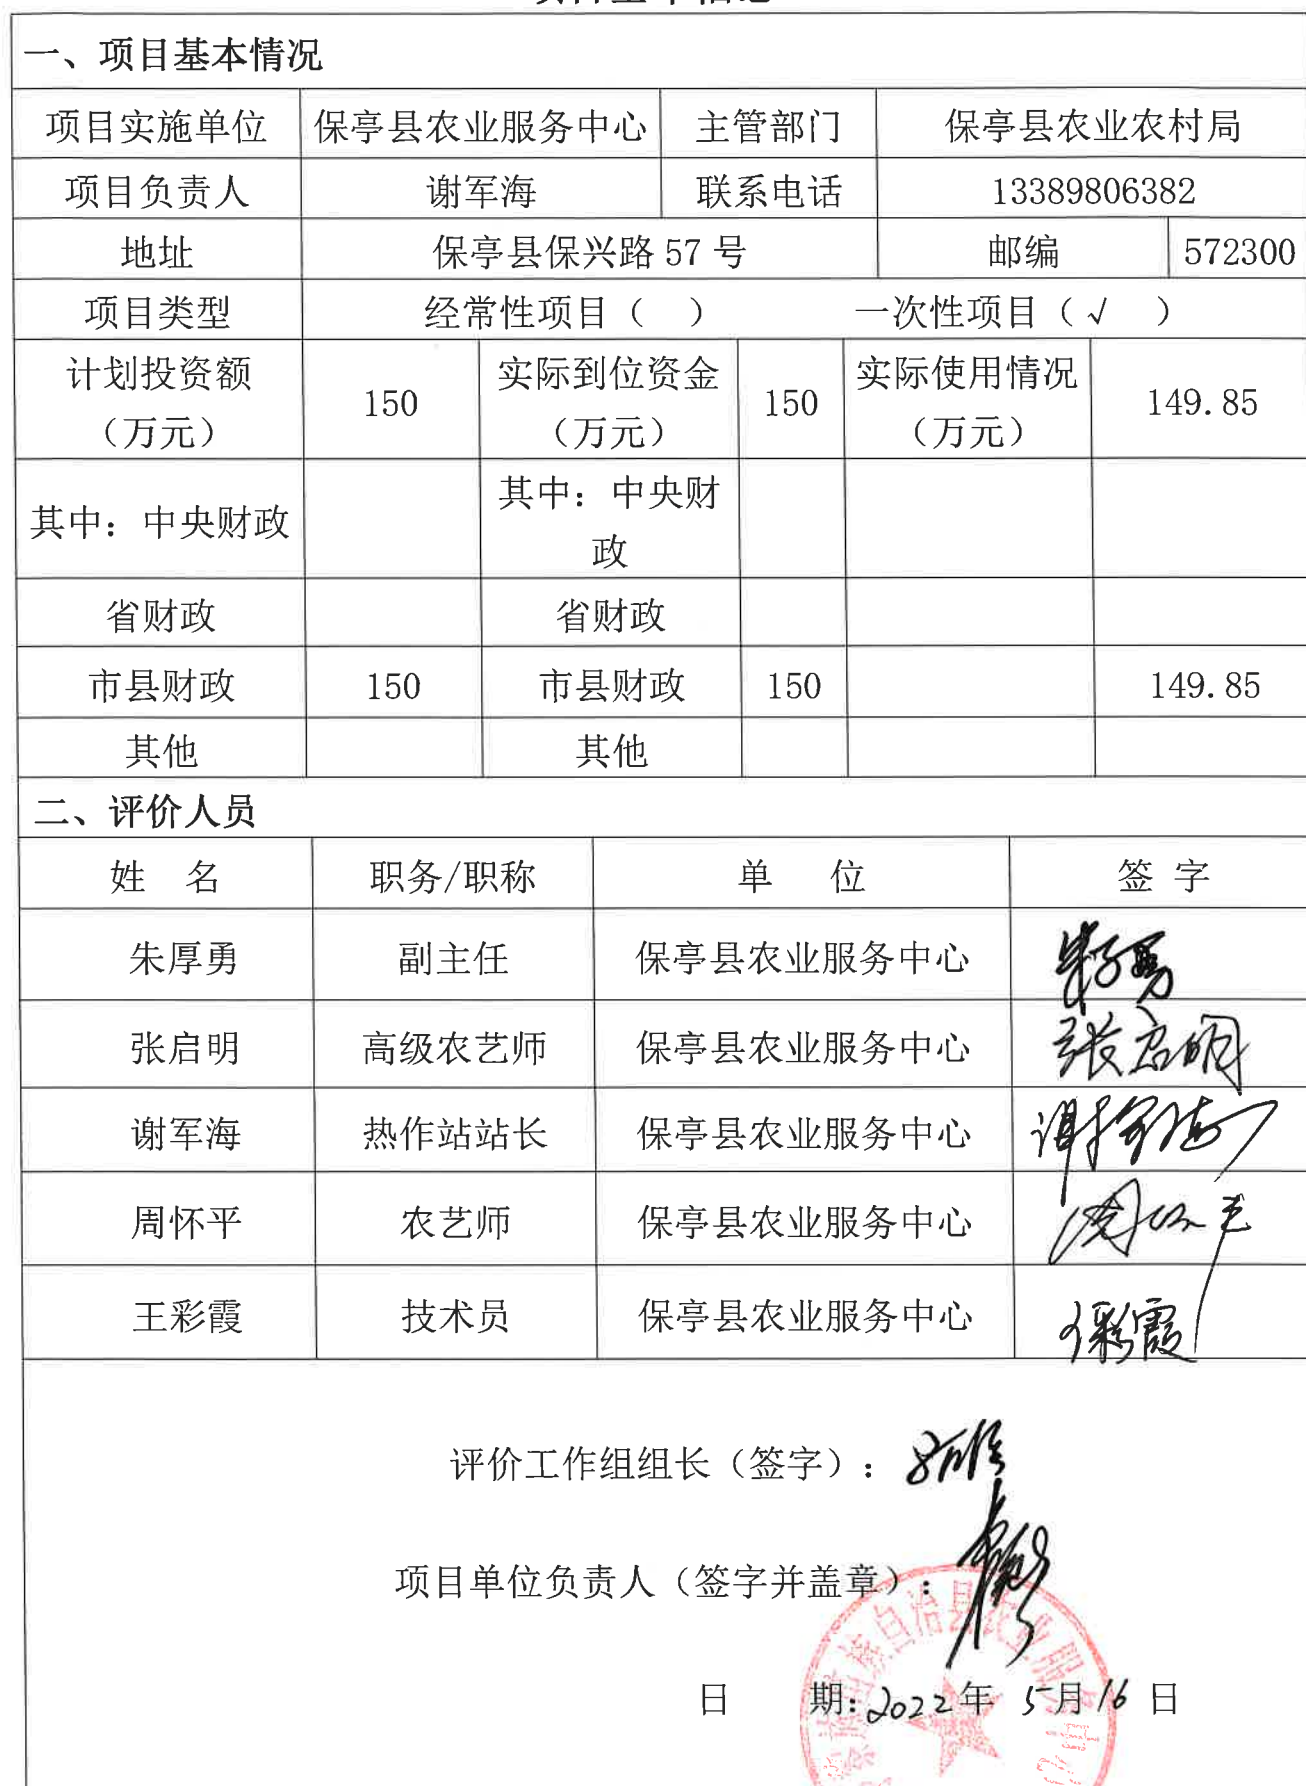 一、项目基本情况
项目实施单位 保亭县农业服务中心 主管部门 保亭县农业农村局
项目负责人 谢军海 联系电话 13389806382
地址 保亭县保兴路 57 号 邮编 572300
项目类型 经常性项目（ ） 一次性项目（√ ）
计划投资额 实际到位资金 实际使用情况
（万元） 150 （万元） 150 （万元） 149.85
其中：中央财政 其中：中央财
政
省财政 省财政
市县财政 150 市县财政 150 149.85
其他 其他
二、评价人员
姓 名 职务/职称 单 位 签 字
朱厚勇 副主任 保亭县农业服务中心
张启明 高级农艺师 保亭县农业服务中心 张启明
谢军海 热作站站长 保亭县农业服务中心 谢军海
周怀平 农艺师 保亭县农业服务中心
王彩霞 技术员 保亭县农业服务中心 王彩霞
评价工作组组长（签字）：
项目单位负责人（签字并盖章）：
日 期：2022年 5月16日